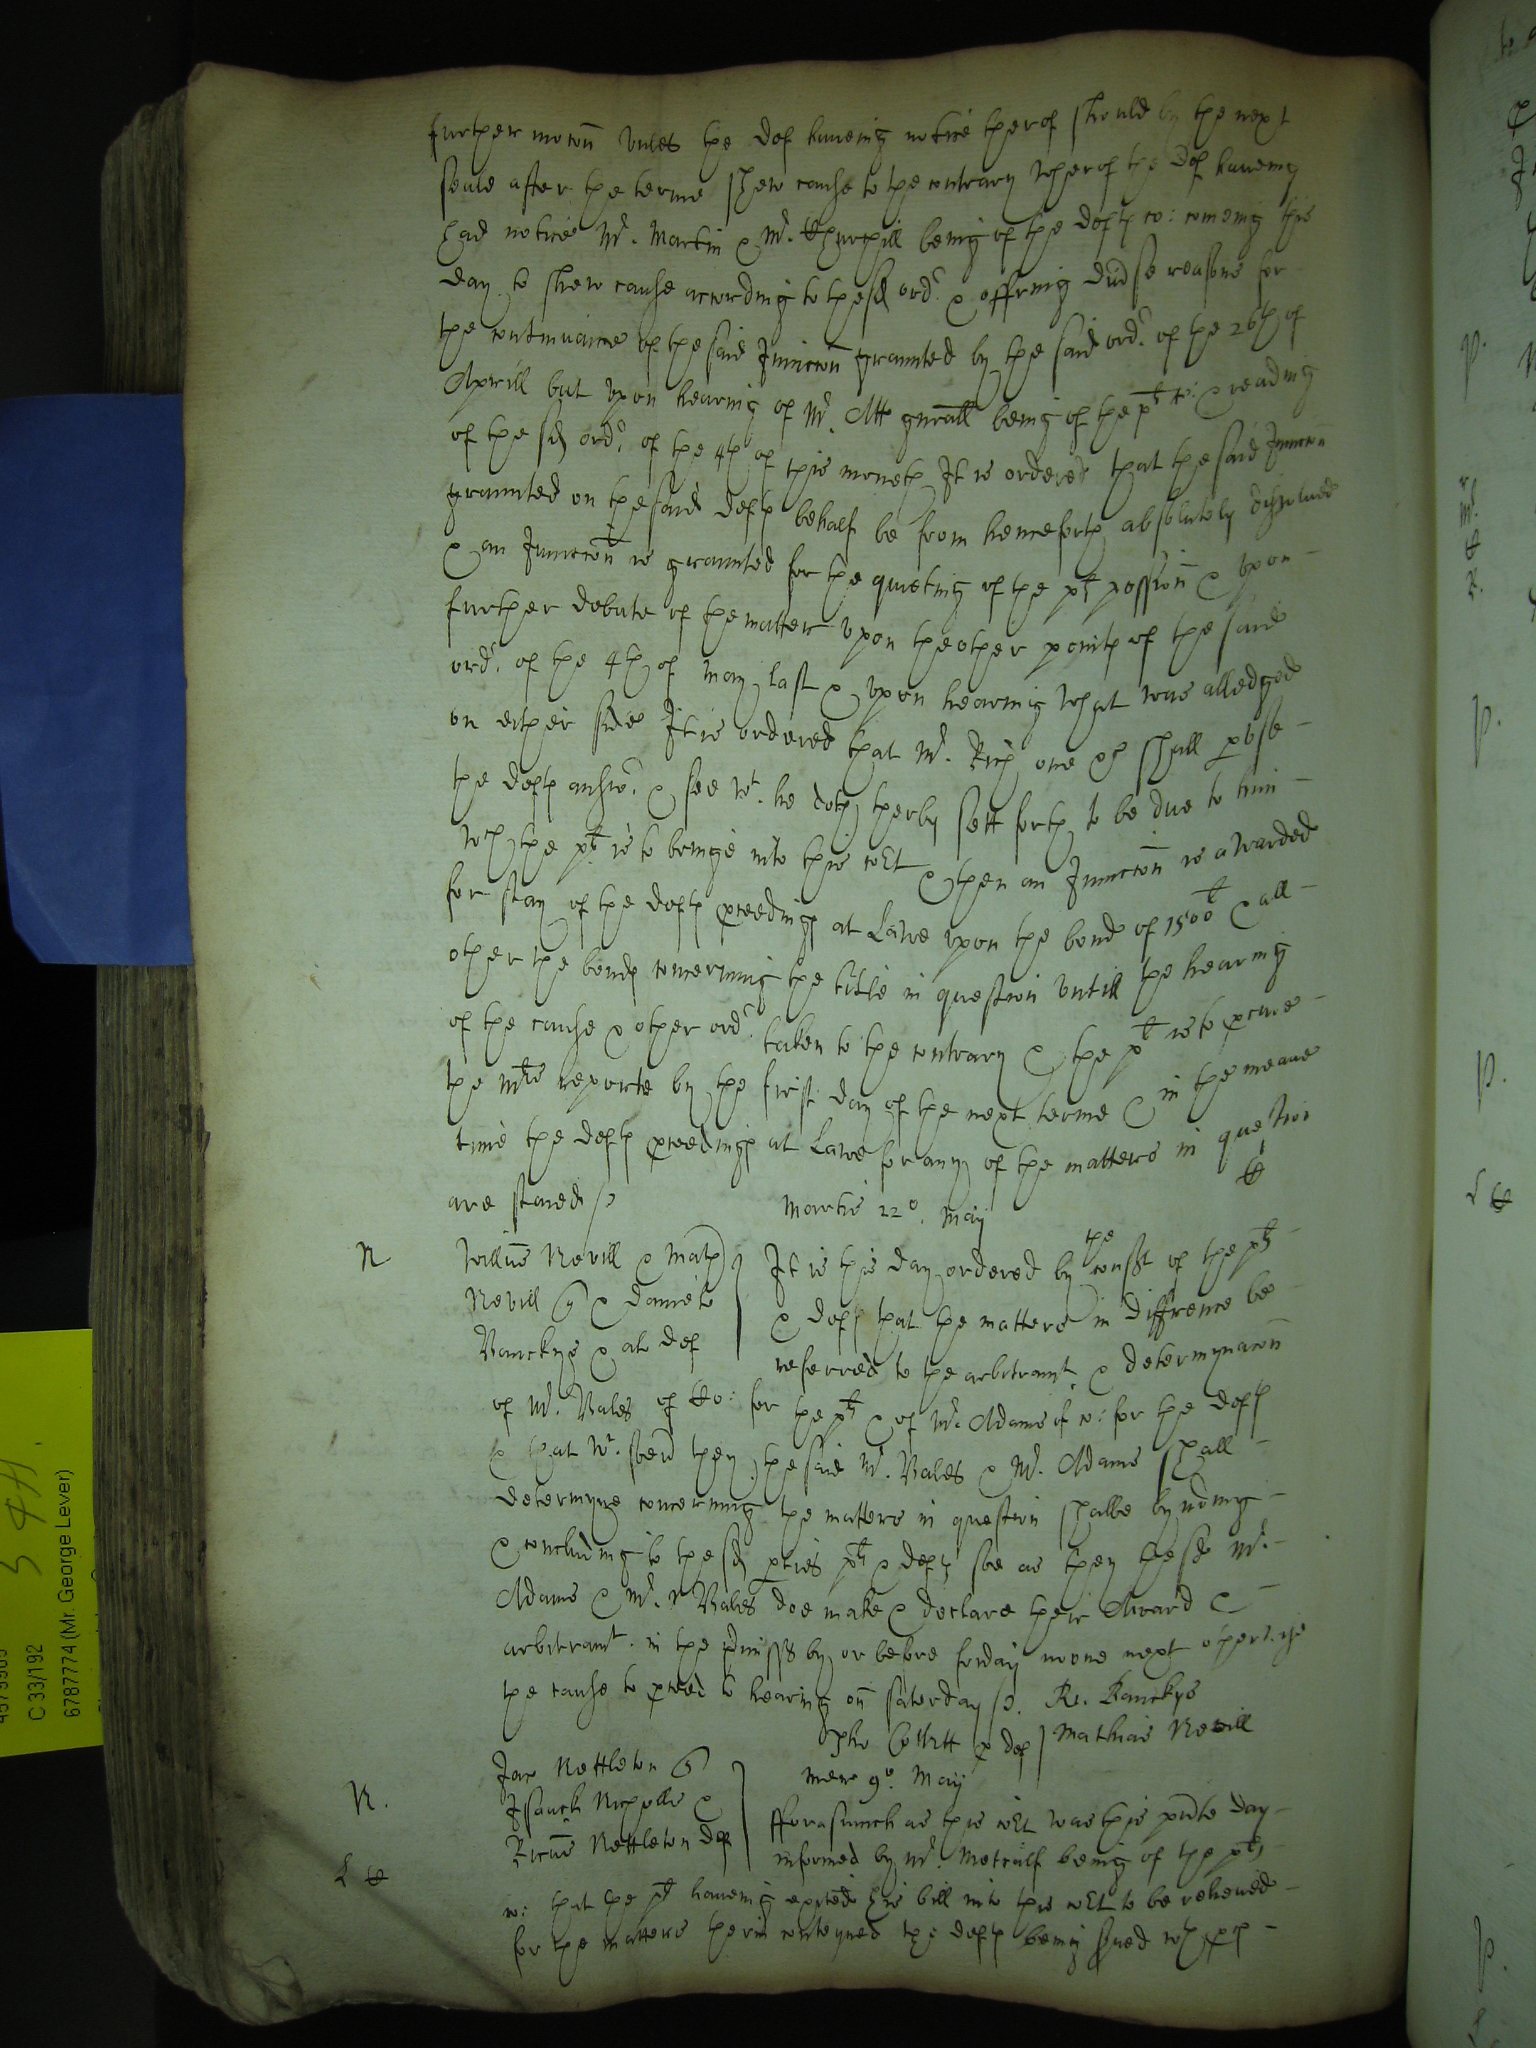 further mocōn unles the def haveing notice therof should by the next
seale after the terme shew cause to the contrary wherof the def haveing
had notice Mr. Martin & Mr. Churchill being of the defts co: coming this
day to shew cause according to the sd ordr. & offring divse reasons for
the continuance of the said Iniuccōn graunted by the said ordr. of the 26th of
Aprill but upon hearing of Mr. Att gnrall being of the plt co: & reading
of the sd ordr. of the 4th of this moneth It is ordered that the said Iniuccōn
graunted on the said defts behalf be from henceforth absolutely dissolued
& an Iniuccōn is graunted for the quieting of the plts possion & upon
further debate of the matter upon the other points of the said
ordr. of the 4th of May last & upon hearing what was alledged
on either side It is ordered that Mr. Rich one &c shall pvse
the defts answr. & see wt. he doth therby sett forth to be due to him
wch the plt is to bringe into this cort & then an Iniuccōn is awarded
for stay of the defts pceedings at Lawe upon the bond of 1500l & all
other the bonds concerning the title in question untill the hearing
of the cause & other ordr. taken to the contrary & the plt is to pcure
the Mrs reporte by the first day of the next terme & in the meane
time the defts pceedings at Lawe for any of the matters in question
are staied
Martis 22o. May
N
Willus Nevill & Math
Nevill & Daniel
Vanckys & al def
It is this day ordered by the consent of the plts
& defts that the matters in diffrence be
referred to the arbitramt. & determynacōn
of Mr. Vales of co: for the plts & of Mr. Adams of co: for the defts
& that wt. soevr they the said Mr. Vales & Mr. Adams shall
determyne concerning the matters in question shalbe bynding
& concluding to the sd pties plts & defts soe as they the sd Mr.
Adams & Mr. Vales doe make & declare their Award &
arbitramt. in the pmisss by or before friday noone next otherwise
the cause to pceed to hearing on Saterday
Ri. Banckys
Mathias Nevill
N.
Jac Nettleton
Isaack Nicholls &
Ricus Nettleton def
Merc 9o. May
fforasmuch as this cort was this pnte day
informed by Mr. Metcalf being of the plts
co: that the plt haveing exhited his bill into this cort to be releived
for the matters therin conteyned the defts being srved wth pces
C 33/192
6787774 (Mr. George Lever)